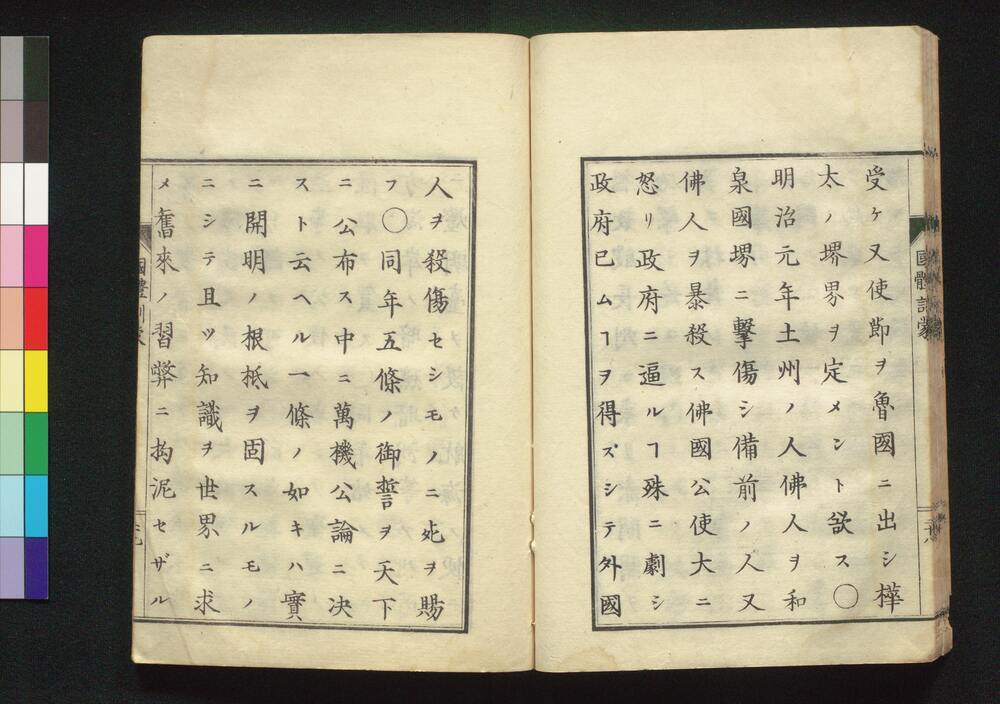 受ケ又使節ヲ魯國ニ出シ樺
太ノ堺界ヲ定メント欲ス〇
明治元年土州ノ人佛人ヲ和
泉國堺ニ擊傷シ備前ノ人又
佛人ヲ暴殺ス佛國公使大ニ
怒リ政府ニ逼ルヿ殊ニ劇シ
政府已ムヿヲ得ズシテ外國
人ヲ殺傷セシモノニ死ヲ賜
フ〇同年五條ノ御誓ヲ天下
ニ公布ス中ニ萬機公論ニ决
スト云ヘル一條ノ如キハ實
ニ開明ノ根柢ヲ固スルモノ
ニシテ且ツ知識ヲ世界ニ求
メ舊來ノ習弊ニ拘泥セザル
國體訓蒙